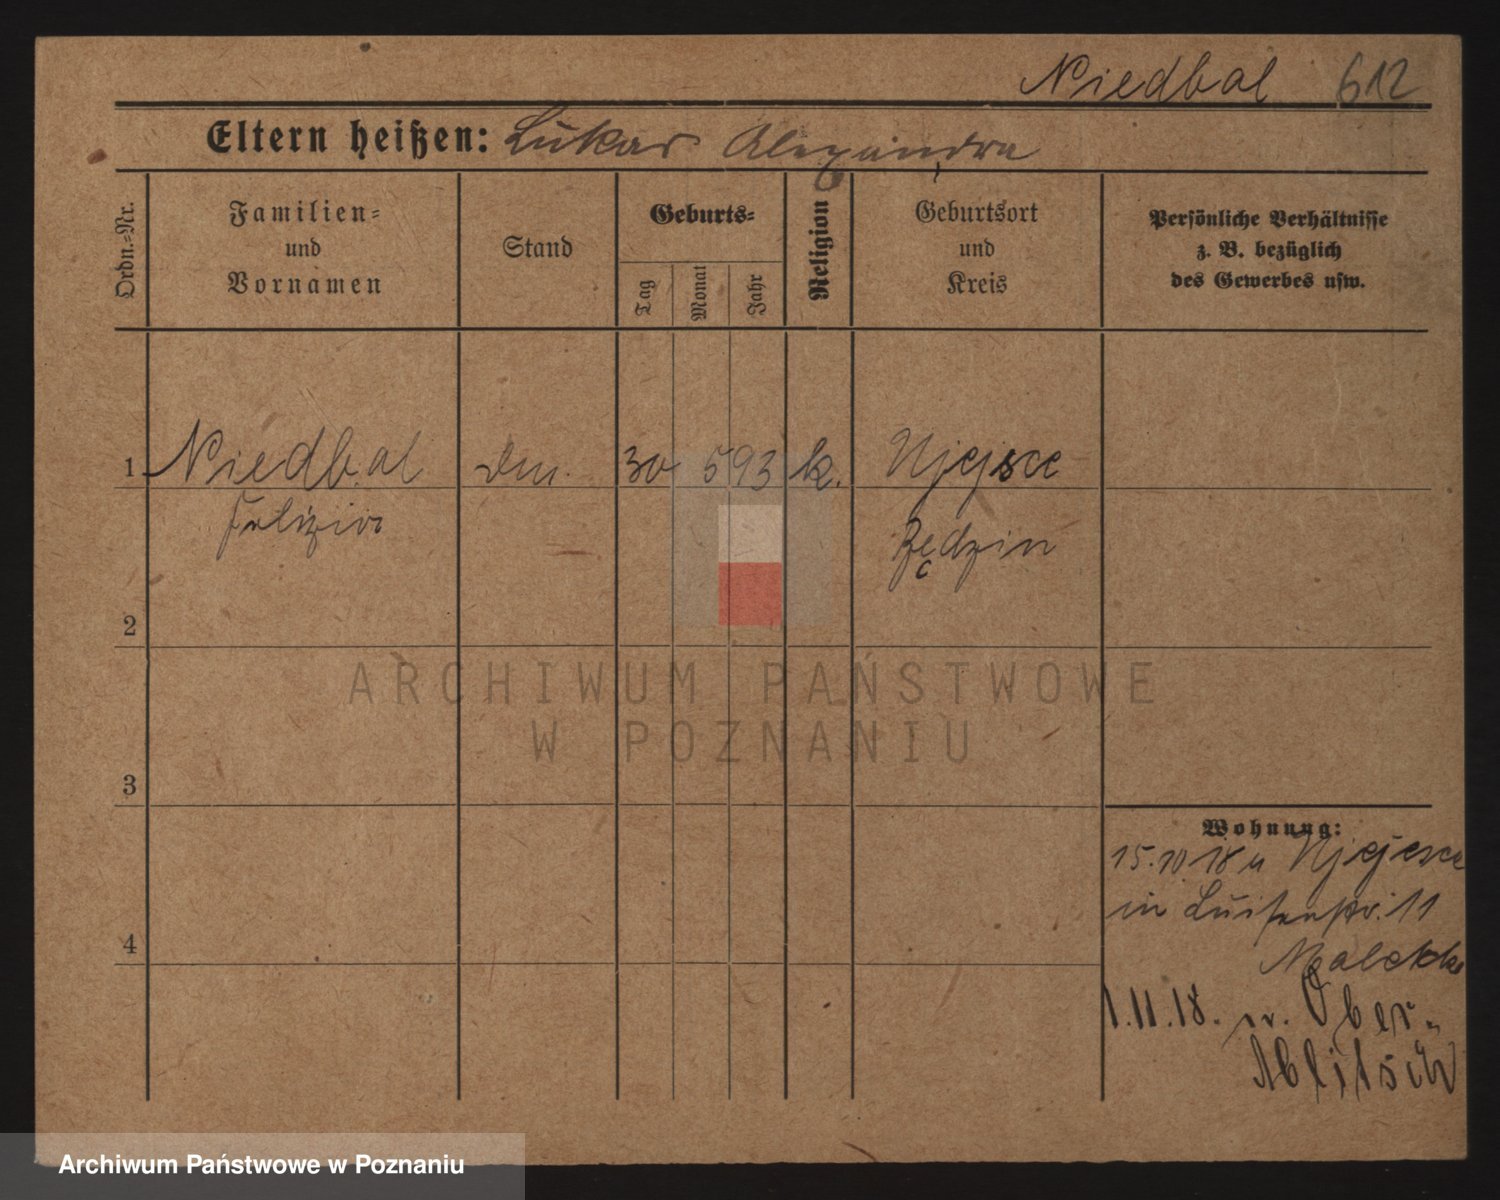 Niedbal 612
Eltern heißen: Lukas Alexandra
Ordn.=Nr.
Familien=
und
Vornamen
Stand
Geburts=
Tag
Monat
Jahr
Religion
Geburtsort
und
Kreis
Persönliche Verhältnisse
z. B. bezüglich
des Gewerbes usw.
1 Niedbal 30 5 93 k. Njejsce
Felizia Będzin
2
ARCHIWUM PAŃSTWOWE
W POZNANIU
3
Wohnung:
15.10.18 Njejesce
in Luisenstr. 11
4
1.11.18. Ober-
Archiwum Państwowe w Poznaniu